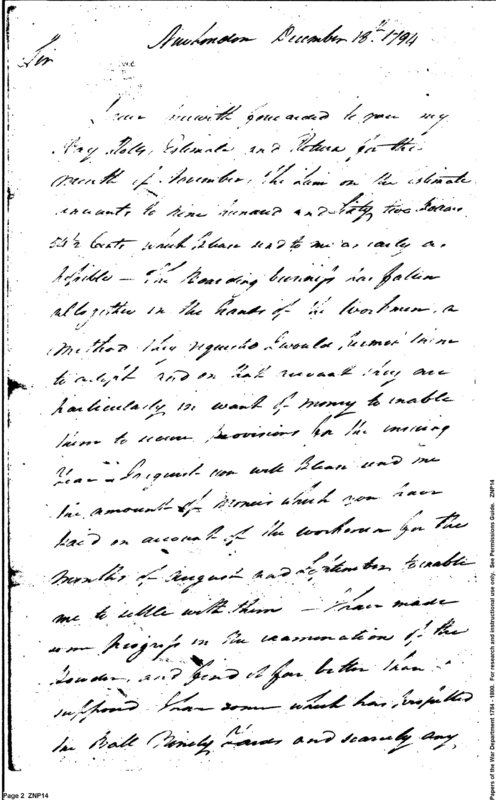 New London December 18th. 1794
Sir
I have herewith forwarded to you my
Pay Rolls, Estimate and Return for the
month of November, the Sum on the estimate
amounts to nine hundred and Sixty two Dollars
53½ Cents which Please send to me as early as
possible — The Boarding business has fallen
altogether in the hands of the Workmen, a
method they requested I would permit them
to adopt and on that account they are
particularly in want of money to enable
them to secure provisions for the ensuing
Year — I request you will Please send me
the amount of Monies which you have
paid on account of the workmen for the
months of August and September to enable
me to settle with them — I have made
some progress in the examination of the
Powder, and find it far better than I
supposed I have some which has propelled
the Ball Ninety Yards and scarcely any
Page 2 ZNP14
Papers of the War Department 1784 - 1800. For research and instructional use only. See Permissions Guide. ZNP14